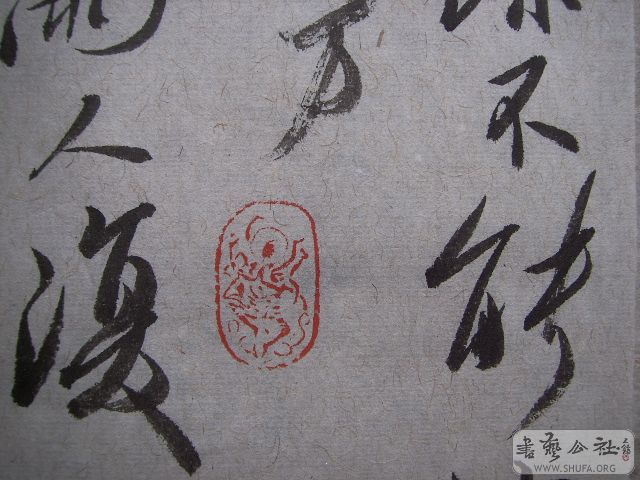 不能
万
人復
書藝公社
WWW.SHUFA.ORG